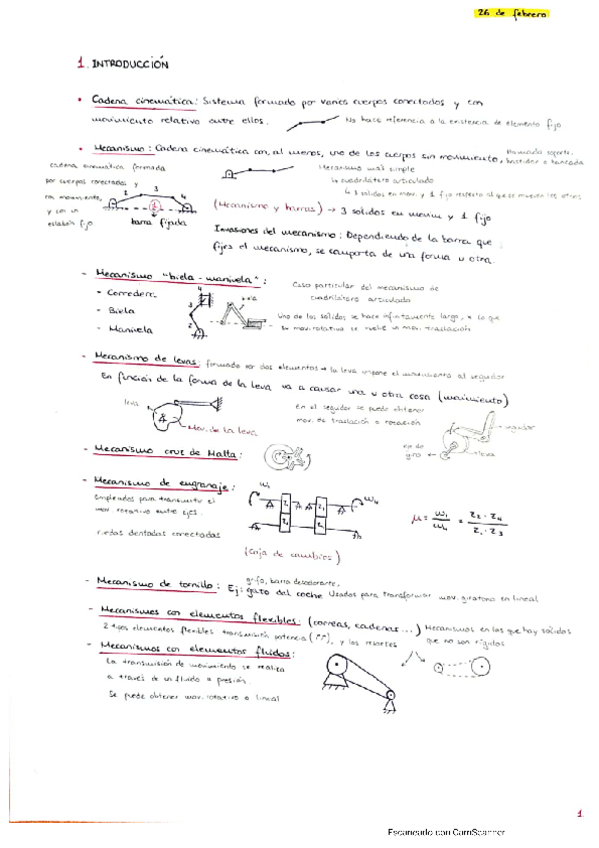 26 de febrero
1. INTRODUCCIÓN
• Cadena cinemática: Sistema formado por varios cuerpos conectados y con
movimiento relativo entre ellos.
No hace referencia a la existencia de elemento fijo
• Mecanismo: Cadena cinemática con, al menos, uno de los cuerpos sin movimiento,
llamado soporte,
bastidor o bancada
cadena cinemática formada
por cuerpos conectados y
con movimiento,
y con un
eslabón fijo
1
2
3
4
barra fijada
Mecanismo más simple
↳ cuadrilátero articulado
↳ 3 solidos en mov. y 1 fijo respecto al que se mueven los otros
(Mecanismo y barras) → 3 solidos en movim y 1 fijo
Invasiones del mecanismo: Dependiendo de la barra que
fijes el mecanismo, se comporta de una forma u otra.
- Mecanismo "biela-manivela":
- Corredera
- Biela
- Manivela
4
3
2
Caso particular del mecanismo de
cuadrilátero articulado
Uno de los solidos se hace infinitamente largo, x lo que
su mov. rotativo se vuelve un mov. traslación
- Mecanismo de levas: formado por dos elementos → la leva impone el movimiento al seguidor
En función de la forma de la leva va a causar una u otra cosa (movimiento)
leva
Mov. de la leva
En el seguidor se puede obtener
mov. de traslación o rotación
seguidor
eje de
giro
leva
- Mecanismo cruz de Malta:
- Mecanismo de engranaje:
Empleados para transmitir el
mov. rotativo entre ejes.
ruedas dentadas conectadas
ω₁
ω₄
(Caja de cambios)
μ = ω₁/ω₄ = z₂·z₄/z₁·z₃
- Mecanismo de tornillo: grifo, barra desodorante.
Ej: gato del coche Usados para transformar mov. giratorio en lineal
- Mecanismos con elementos flexibles: (correas, cadenas...) Mecanismos en los que hay solidos
que no son rígidos
2 tipos elementos flexibles transmisión potencia, y los resortes
- Mecanismos con elementos fluidos:
La transmisión de movimiento se realiza
a través de un fluido a presión
Se puede obtener mov. rotativo o lineal
1.
Escaneado con CamScanner